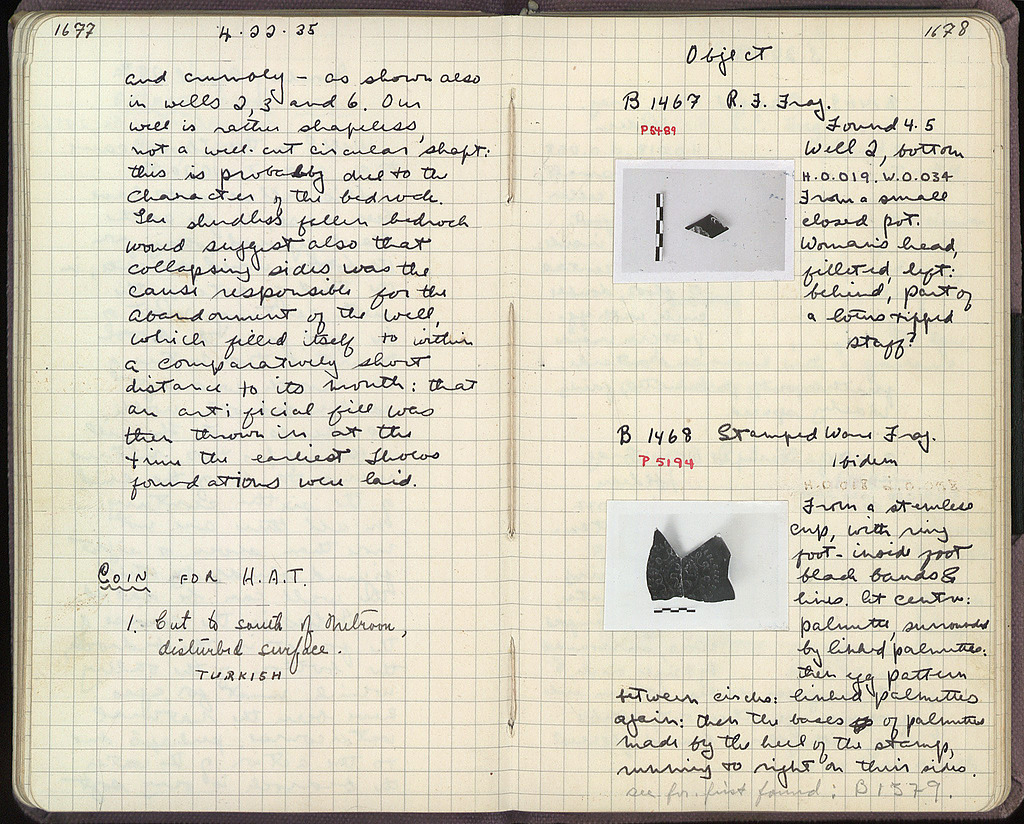 1677
4.22.35
and crumbly – as shown also
in wells 2, 3 and 6. Our
well is rather shapeless,
not a well-cut circular shaft:
this is probably due to the
character of the bedrock.
The sherdless fallen bedrock
would suggest also that
collapsing sides was the
cause responsible for the
abandonment of the well,
which filled itself to within
a comparatively short
distance to its mouth: that
an artificial fill was
then thrown in at the
time the earliest Tholos
foundations were laid.
COIN FOR H.A.T.
1. Cut to south of Metroon,
disturbed surface.
TURKISH
1678
Object
B 1467 R. F. Frag.
P5489
Found 4.5
Well 2, bottom
H.0.019. W.0.034
From a small
closed pot.
Woman's head,
filleted, left:
behind, part of
a lotus tipped
staff?
B 1468 Stamped Ware Frag.
P 5194
ibidem
From a stemless
cup, with ring
foot - inside foot
black bands &
lines. At centre:
palmette, surrounded
by linked palmettes:
then egg pattern
between circles: linked palmettes
again: then the bases of palmettes
made by the heel of the stamp,
running to right on their sides.
see for first found: B1579.